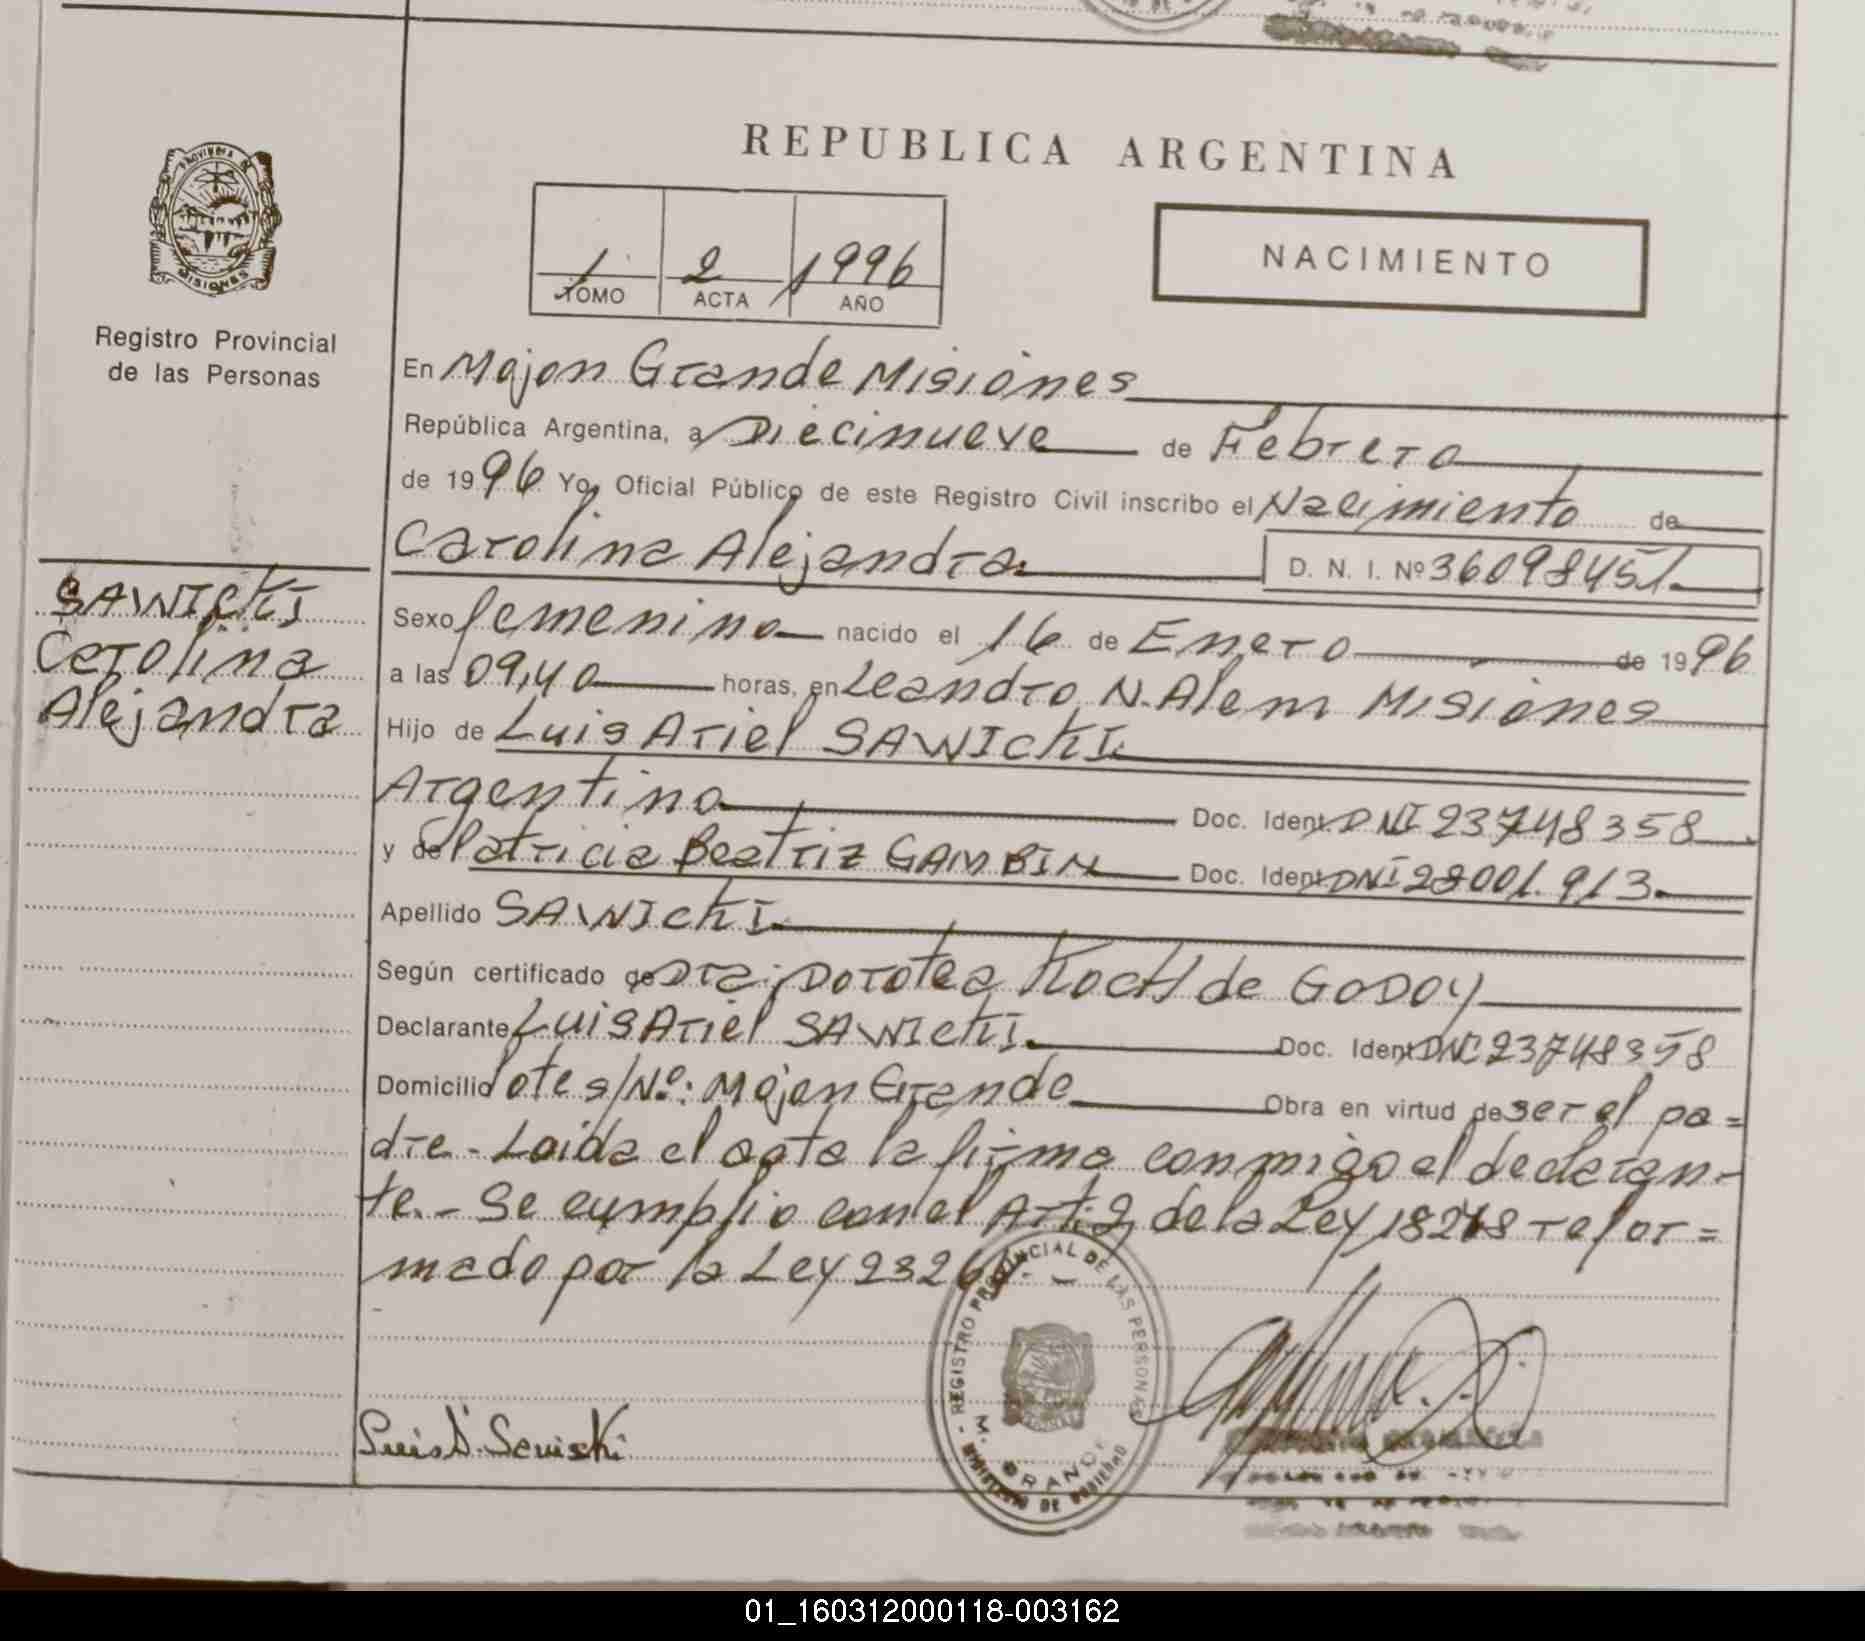 REPUBLICA ARGENTINA
PROVINCIA DE
MISIONES
Registro Provincial
de las Personas
1 2 1996
TOMO ACTA AÑO
NACIMIENTO
En Mojon Grande Misiones
República Argentina, a Diecinueve de Febrero
de 1996 Yo, Oficial Público de este Registro Civil inscribo el Nacimiento de
Carolina Alejandra D. N. I. Nº 36098451
SAWICKI
Carolina
Alejandra
Sexo femenino nacido el 16 de Enero de 1996
a las 09,40 horas, en Leandro N. Alem Misiones
Hijo de Luis Ariel SAWICKI
Argentino Doc. Ident. DNI 23748358
y de Patricia Beatriz GAMBIN Doc. Ident. DNI 28001.913
Apellido SAWICKI
Según certificado de Dra: Dorotea KocH de GODOY
Declarante Luis Ariel SAWICKI Doc. Ident. DNI 23748358
Domicilio lote s/Nº: Mojon Grande Obra en virtud de ser el pa=
dre.- Loida el acta la firma conmigo el declaran-
te.- Se cumplio con el Art. 2 de la Ley 18248 refor=
mado por la Ley 23264.-
REGISTRO PROVINCIAL DE LAS PERSONAS
M. GRANDE
MINISTERIO DE GOBIERNO
Luis A. Sawicki
01_160312000118-003162